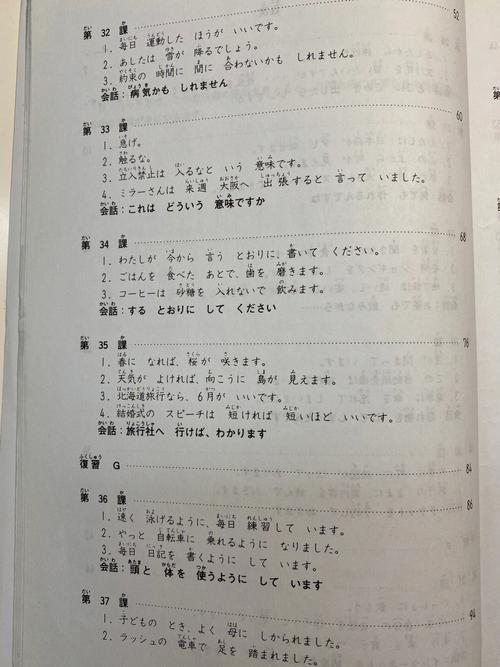 第32課 52
1. 毎日 運動した ほうが いいです。
2. あしたは 雪が 降るでしょう。
3. 約束の 時間に 間に 合わないかも しれません。
会話：病気かも しれません
第33課 60
1. 急げ。
2. 触るな。
3. 立入禁止は 入るなと いう 意味です。
4. ミラーさんは 来週 大阪へ 出張すると 言って いました。
会話：これは どういう 意味ですか
第34課 68
1. わたしが 今から 言う とおりに、書いて ください。
2. ごはんを 食べた あとで、歯を 磨きます。
3. コーヒーは 砂糖を 入れないで 飲みます。
会話：する とおりに して ください
第35課 76
1. 春に なれば、桜が 咲きます。
2. 天気が よければ、向こうに 島が 見えます。
3. 北海道旅行なら、6月が いいです。
4. 結婚式の スピーチは 短ければ 短いほど いいです。
会話：旅行社へ 行けば、わかります
復習 G 84
第36課 86
1. 速く 泳げるように、毎日 練習して います。
2. やっと 自転車に 乗れるように なりました。
3. 毎日 日記を 書くように して います。
会話：頭と 体を 使うように して います
第37課 94
1. 子どもの とき、よく 母に しかられました。
2. ラッシュの 電車で 足を 踏まれました。